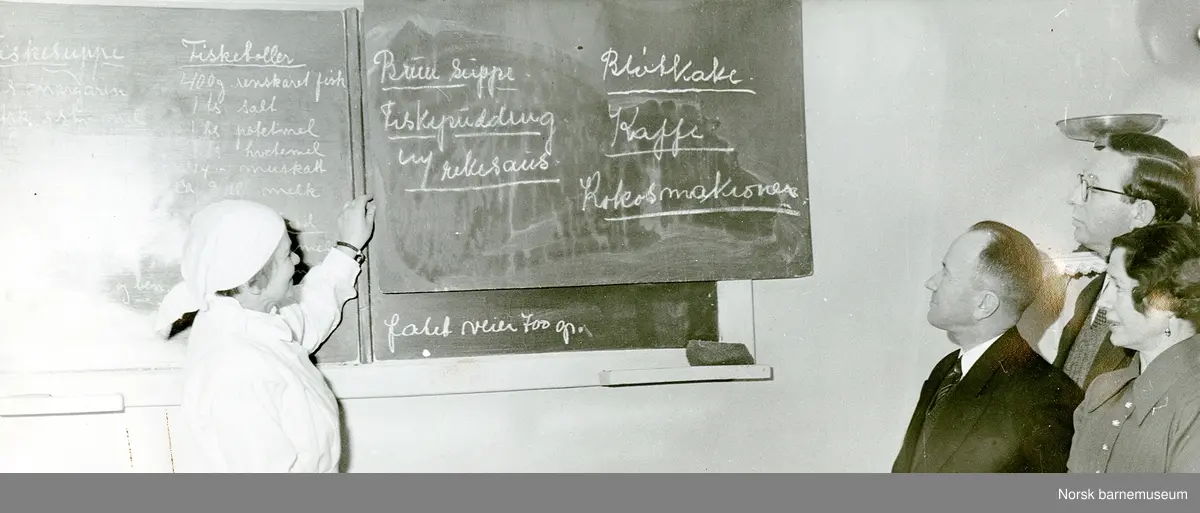 Fiskesuppe
margarin
mel
Fiskeboller
400 g renskaret fisk
1 ts salt
1 ts potetmel
1 ts hvetemel
1/4 - muskatt
ca 2 dl melk
og ben
Brun suppe.
Fiskepudding
m/ rekesaus
Bløtkake.
Kaffe.
Kokosmakroner
fatet veier 700 gr.
Norsk barnemuseum